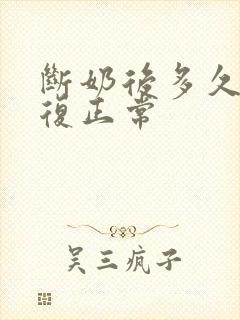 斷奶後多久
復正常
吴三疯子